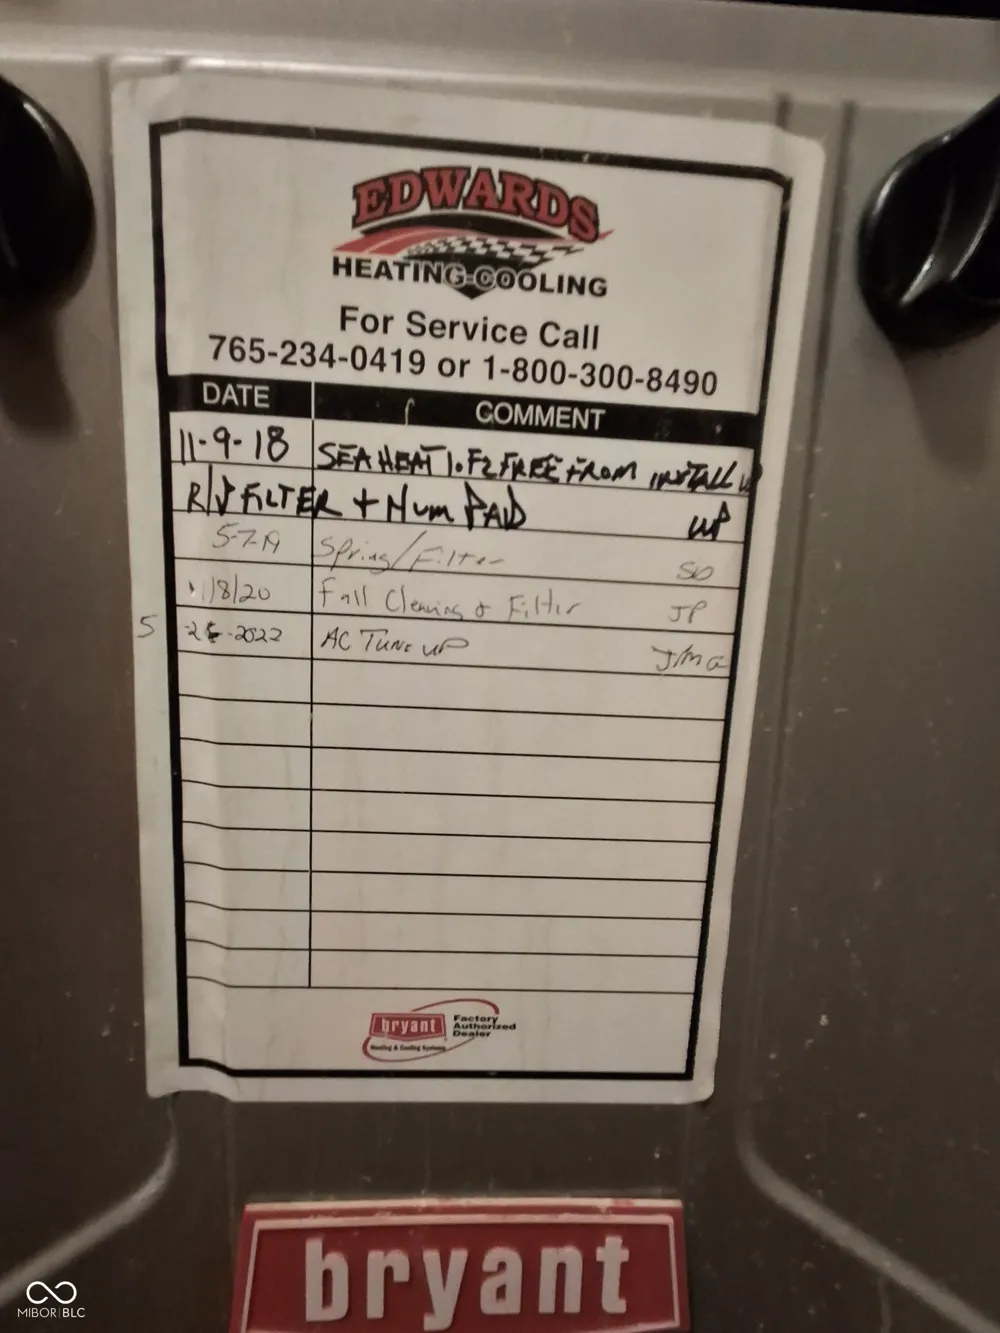 EDWARDS
HEATING-COOLING
For Service Call
765-234-0419 or 1-800-300-8490
DATE COMMENT
11-9-18 SEA HEAT 1 OF 2 FREE FROM INSTALL
R/V FILTER + HUM PAD WP
5-7-19 Spring/Filter SD
11/8/20 Fall Cleaning & Filter JP
5 -2-2022 AC TUNE UP JMG
bryant Factory
Authorized
Dealer
Heating & Cooling Systems
bryant
MIBOR|BLC